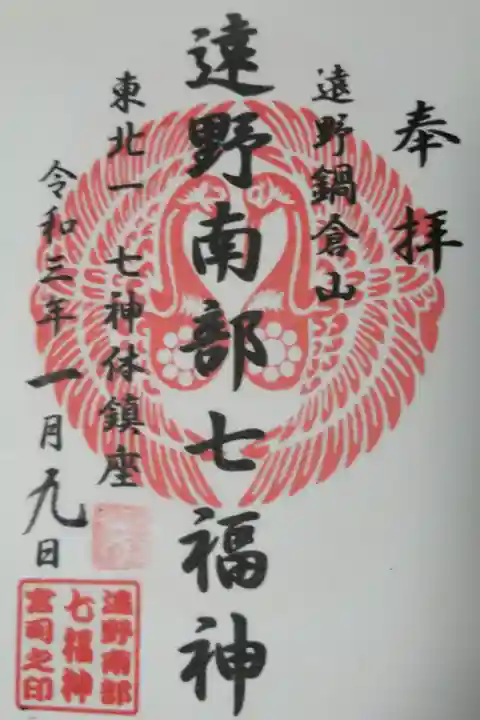 奉拝
遠野鍋倉山
遠野南部七福神
東北一 七神体鎮座
令和三年 一月九日
遠野南部
七福神
宮司之印